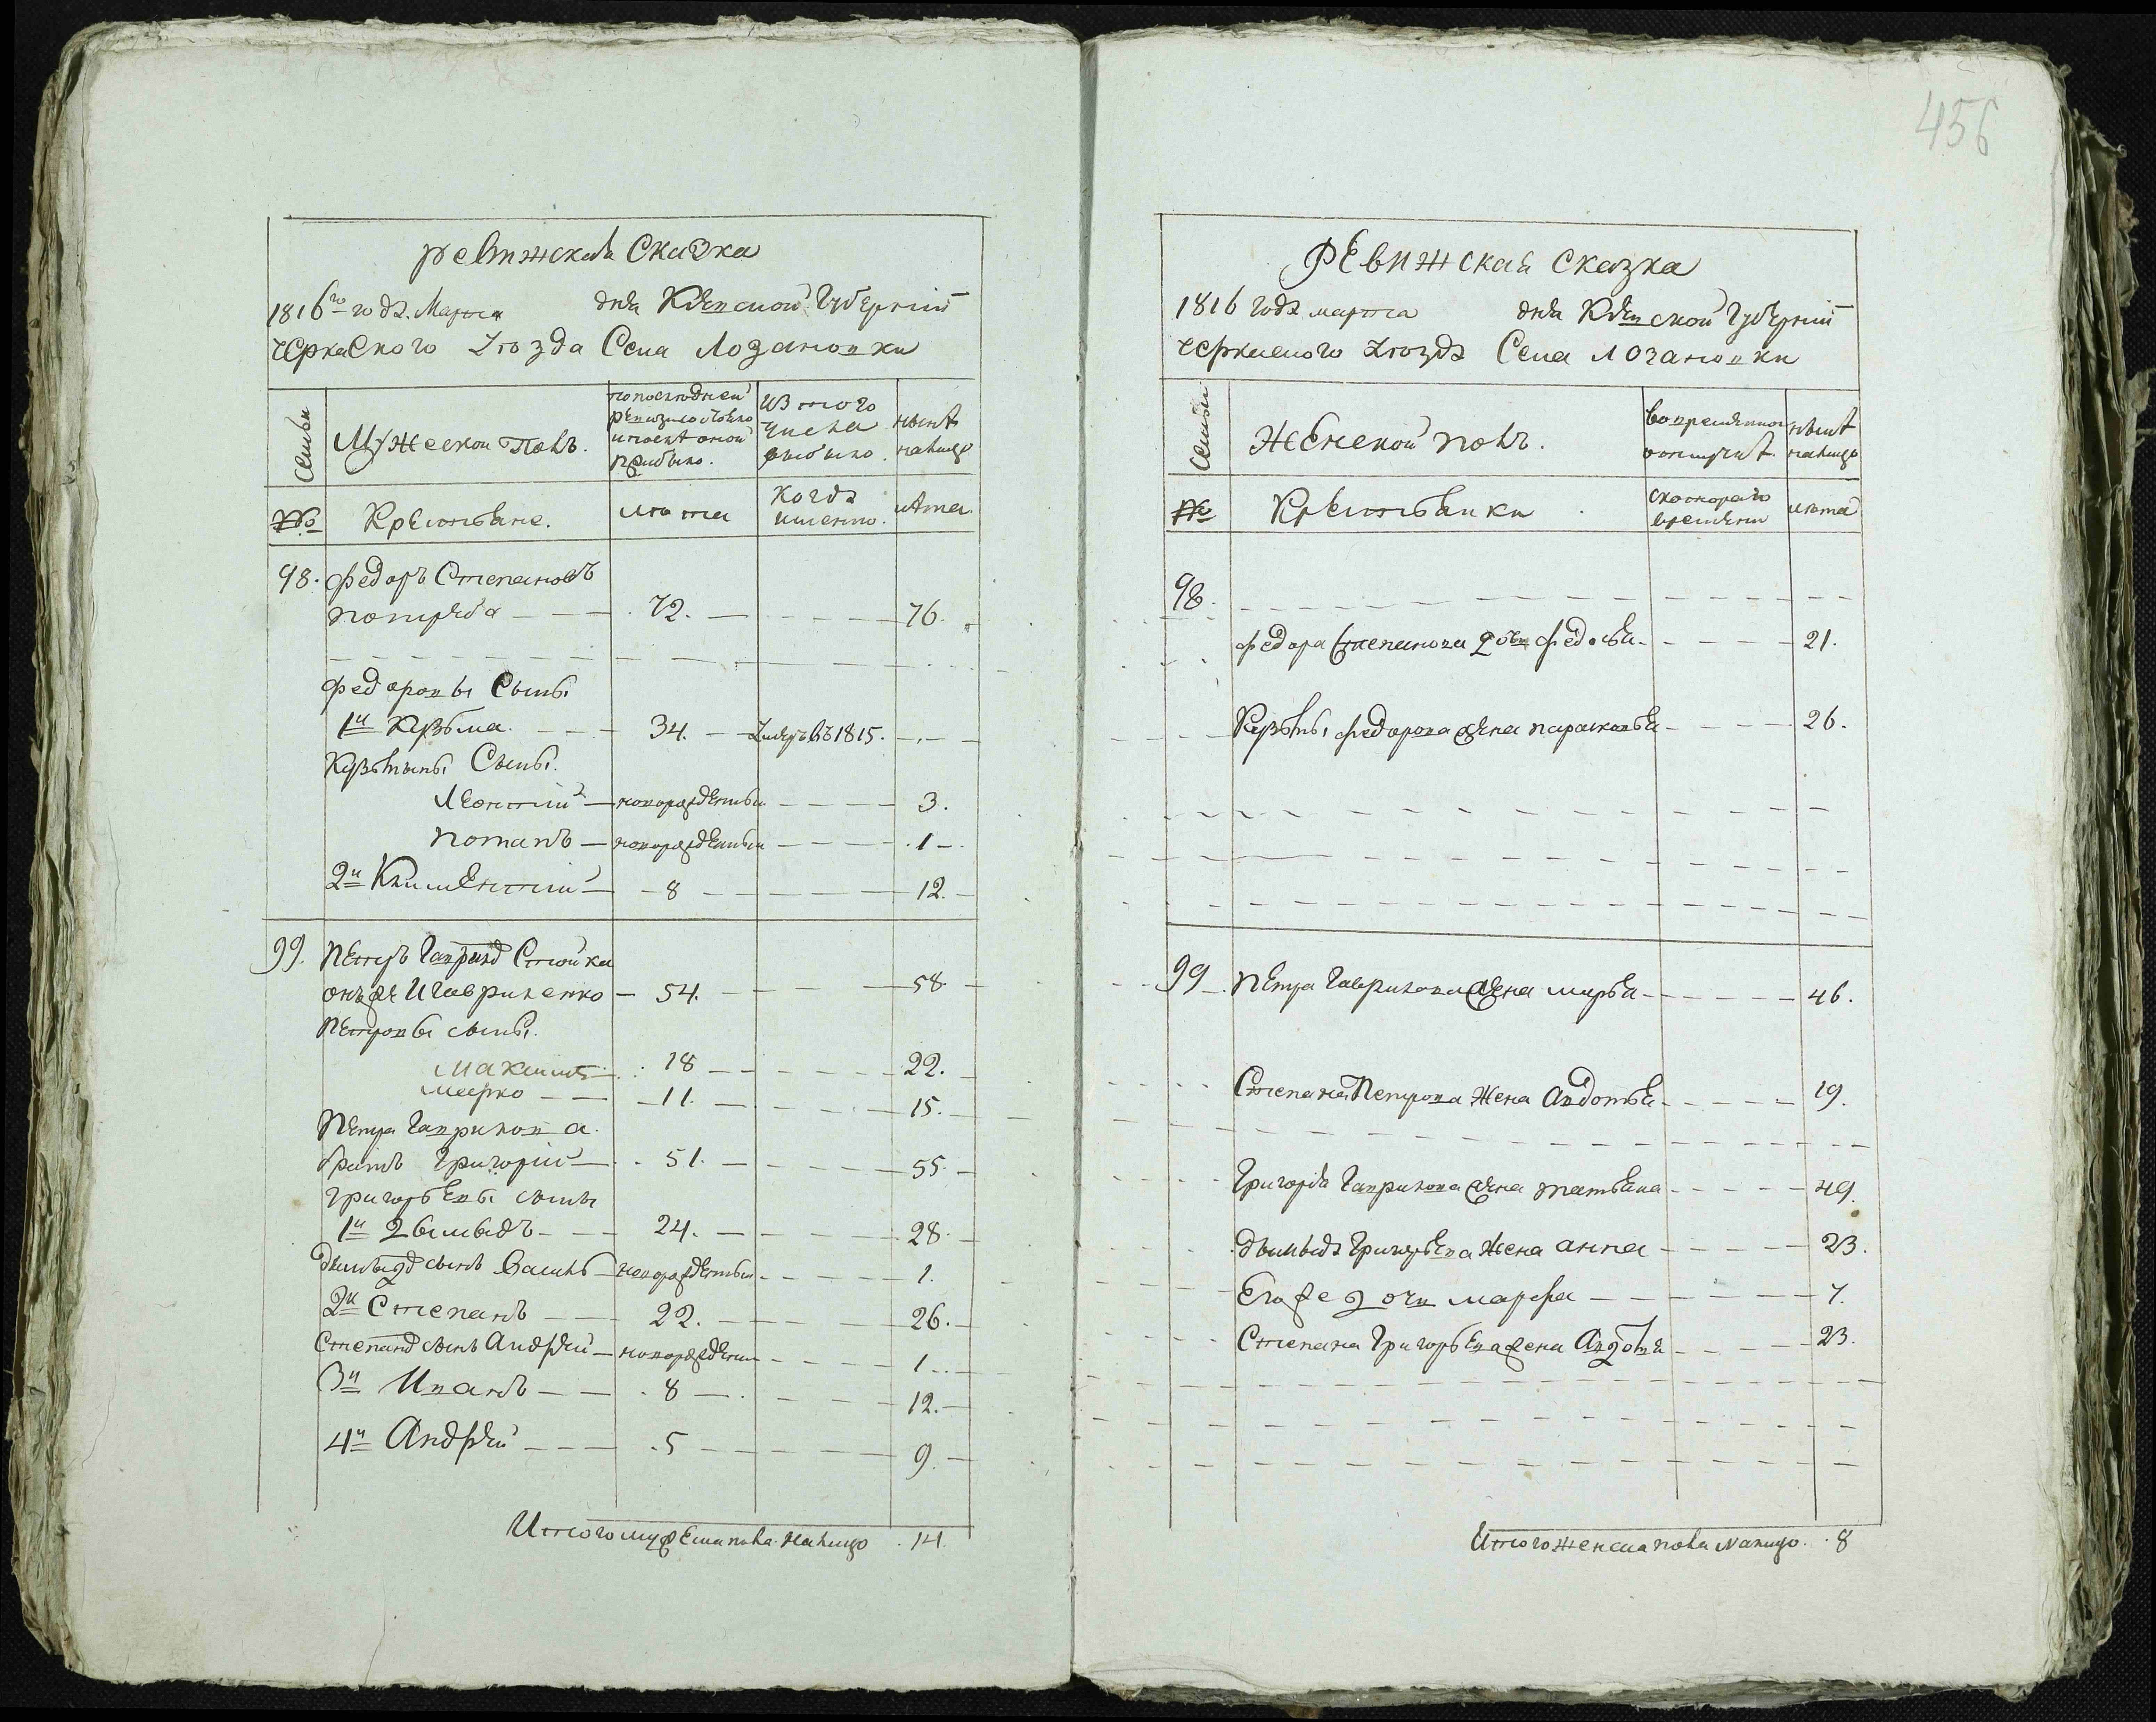 456
ревижская Сказка
1816го года Марта дня Киевской Губернии
черкаского уезда Села Лозановки
семьи
Мужеской Полъ.
по последней ревизии состояло и после оной прибыло.
из того числа выбыло.
ныне налицо
№
Крестьяне.
лета
когда имянно.
лета
98. Федоръ Степановъ
Потреба 72. 76.
Федоровы Сыны
1й Кузьма. 34. умеръ въ 1815.
Кузьмины Сыны.
Леонтий новорожденный 3.
Потапъ новорожденный 1
2й Климентий 8 12.
99. Петръ Гаврилов Стойка
онъ же и Гавриленко 54. 58.
Петровы сыны.
Максимъ 18 22.
Марко 11. 15.
Петра Гаврилова
братъ Григорий 51. 55.
Григорьевы сыны
1й Демьядъ 24. 28.
сынъ Василь новорожденный 1.
2й Степанъ 22. 26.
Степанов сынъ Андрей новорожден 1
3й Иванъ 8 12.
4й Андрей 5 9.
Итого мужеска пола налицо 14.
Ревижская сказка
1816 года марта дня Киевской Губернии
черкаского уезда Села Лозановки
семьи
Женской полъ.
во временной отлучке.
ныне налицо
№
Крестьянки
с которого времяни
лета
98.
Федора Степанова дочь Федосья 21.
Кузьмы Федорова жена парасковья 26.
99 Петра Гаврилова жена марья 46.
Степана Петрова Жена Авдотья 19.
Григория Гаврилова жена татьяна 49.
Григорьева Жена анна 23.
Его же дочь марфа 7.
Степана Григорьева жена Авдотья 23.
Итого женска пола налицо. 8